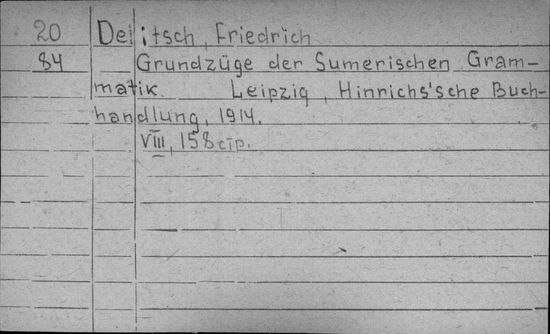 20 Delitsch, Friedrich
84 Grundzüge der Sumerischen Gram-
matik. Leipzig, Hinrichs'sche Buch-
handlung, 1914.
VIII, 158 стр.